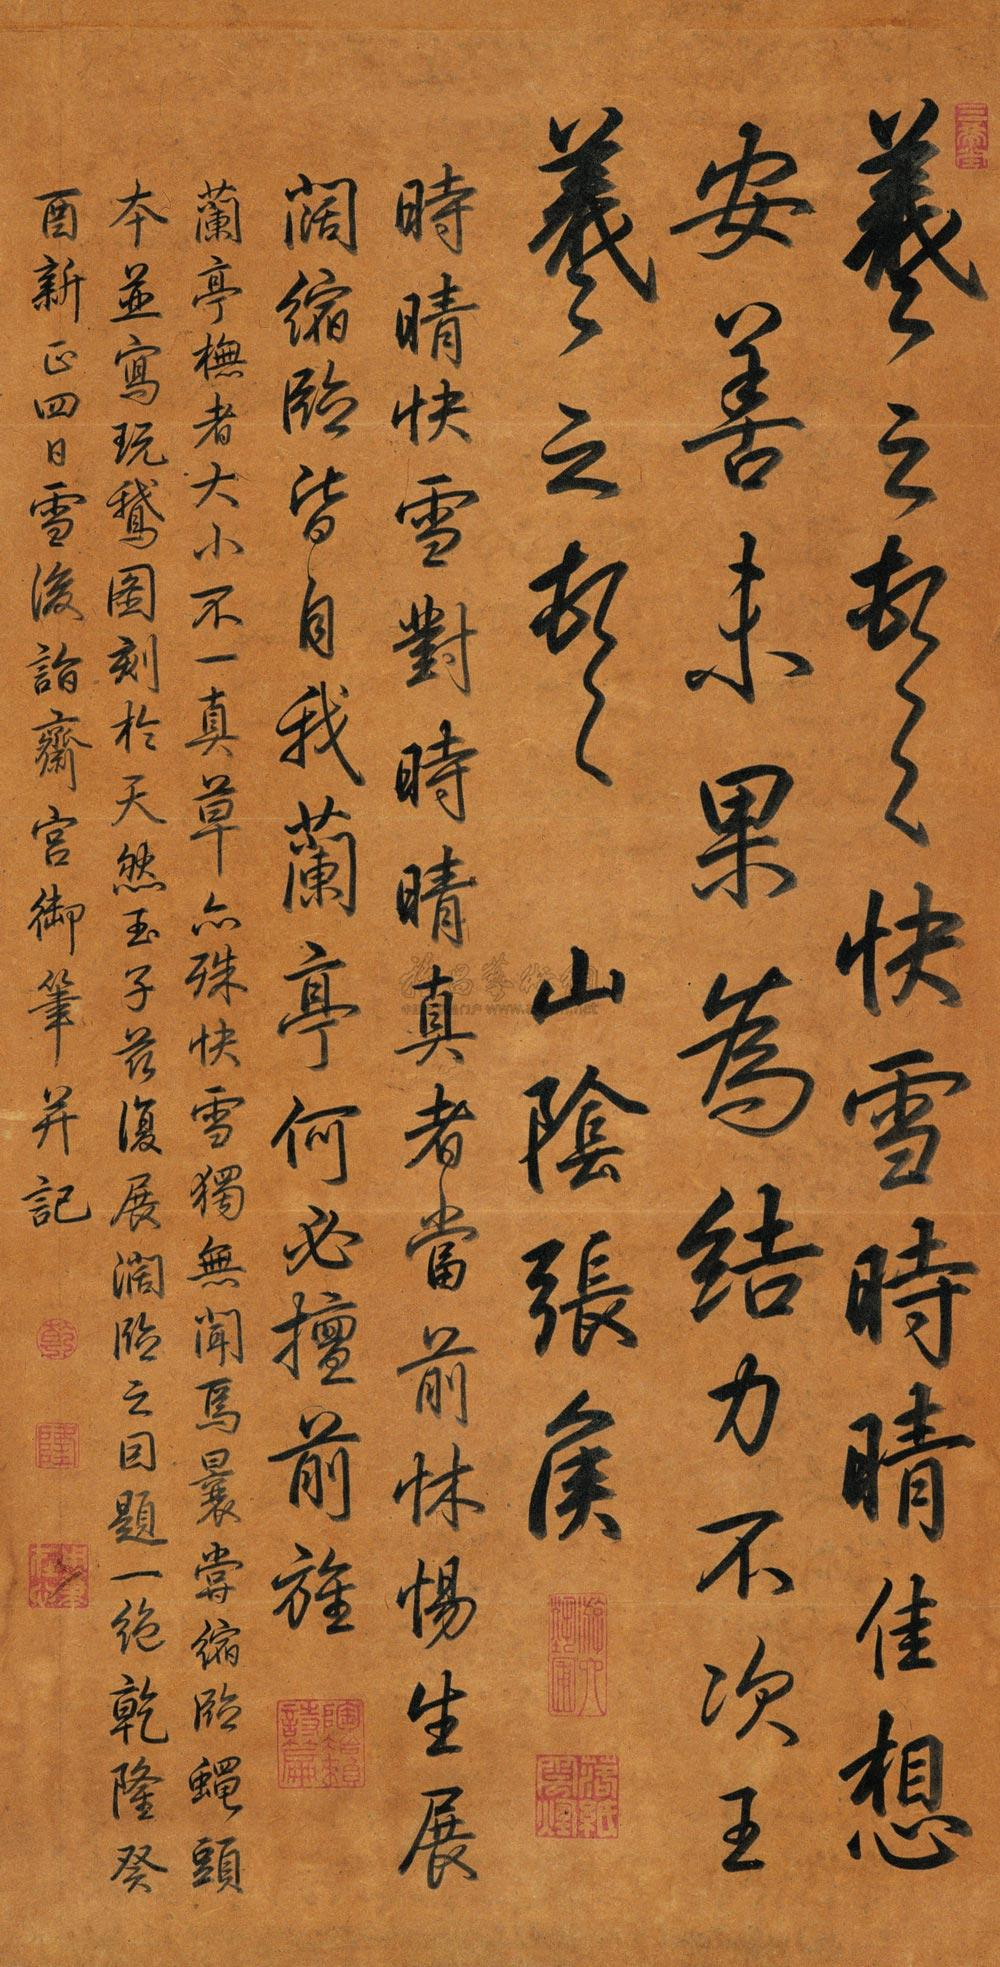 羲之頓首快雪時晴佳想
安善未果為結力不次王
羲之頓首 山陰張侯
時晴快雪對時晴真者當前怵惕生展
闊縮臨皆自我蘭亭何必擅前旌
蘭亭橅者大小不一真草亦殊快雪獨無聞焉曩嘗縮臨蠅頭
本並寫玩鵞圖刻於天然玉子茲復展濶臨之因題一絶乾隆癸
酉新正四日雪後詣齋宮御筆并記
乾
隆
陶鎔
詩篇